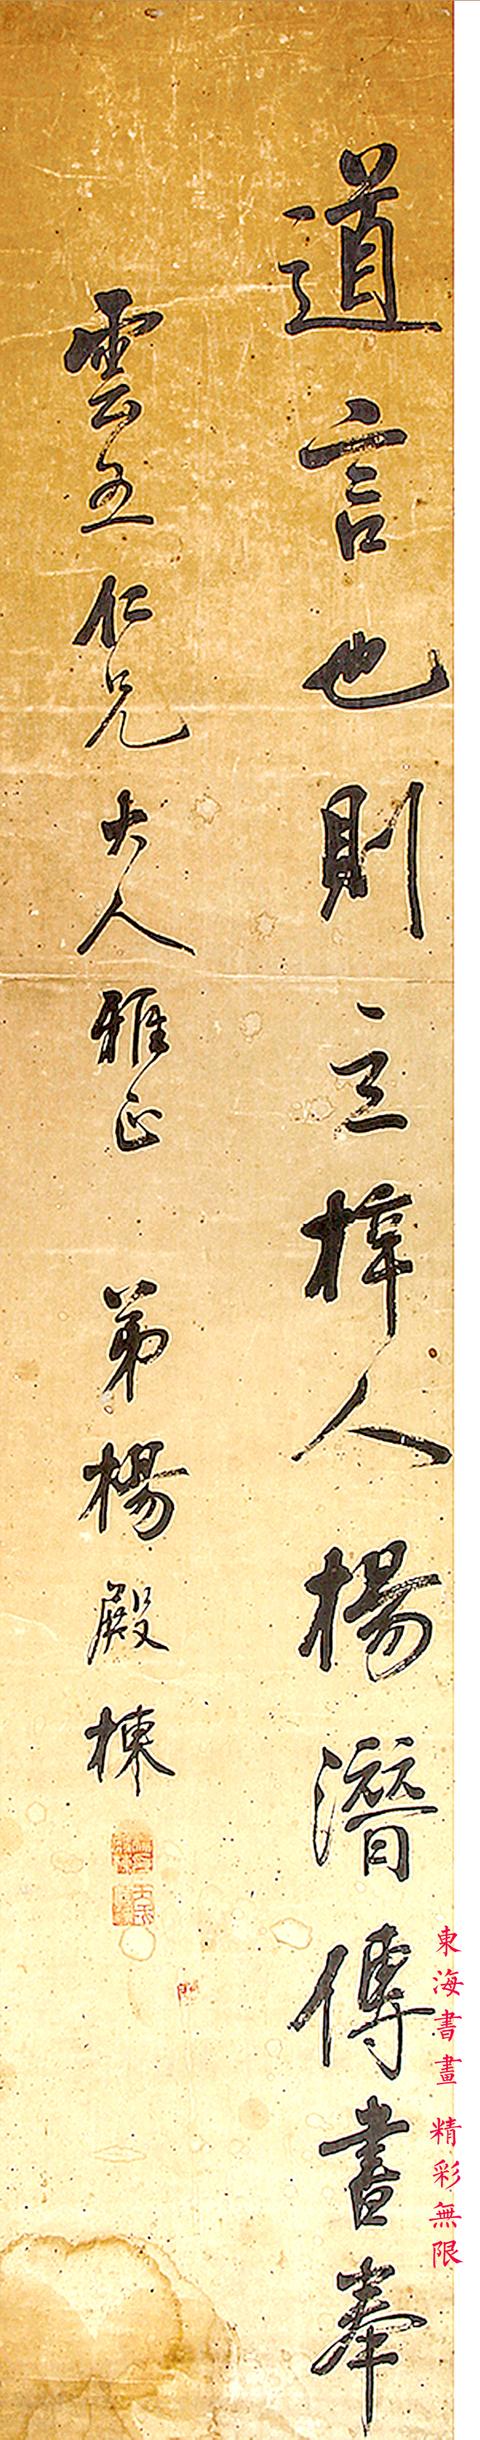 道言也則立梓人楊潛傳書奉
雲五仁兄大人雅正 弟楊殿棟
東海書畫 精彩無限